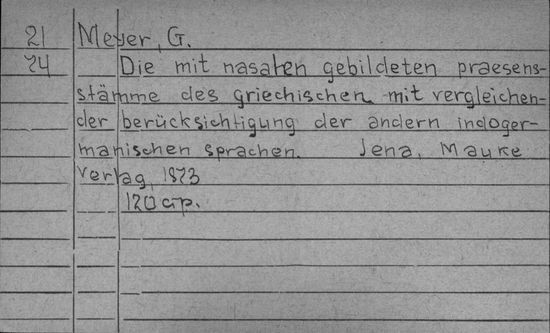 21 Meyer, G.
74 Die mit nasalen gebildeten praesens-
stämme des griechischen mit vergleichen-
der berücksichtigung der andern indoger-
manischen sprachen. Jena, Mauke
Verlag, 1873
120 стр.